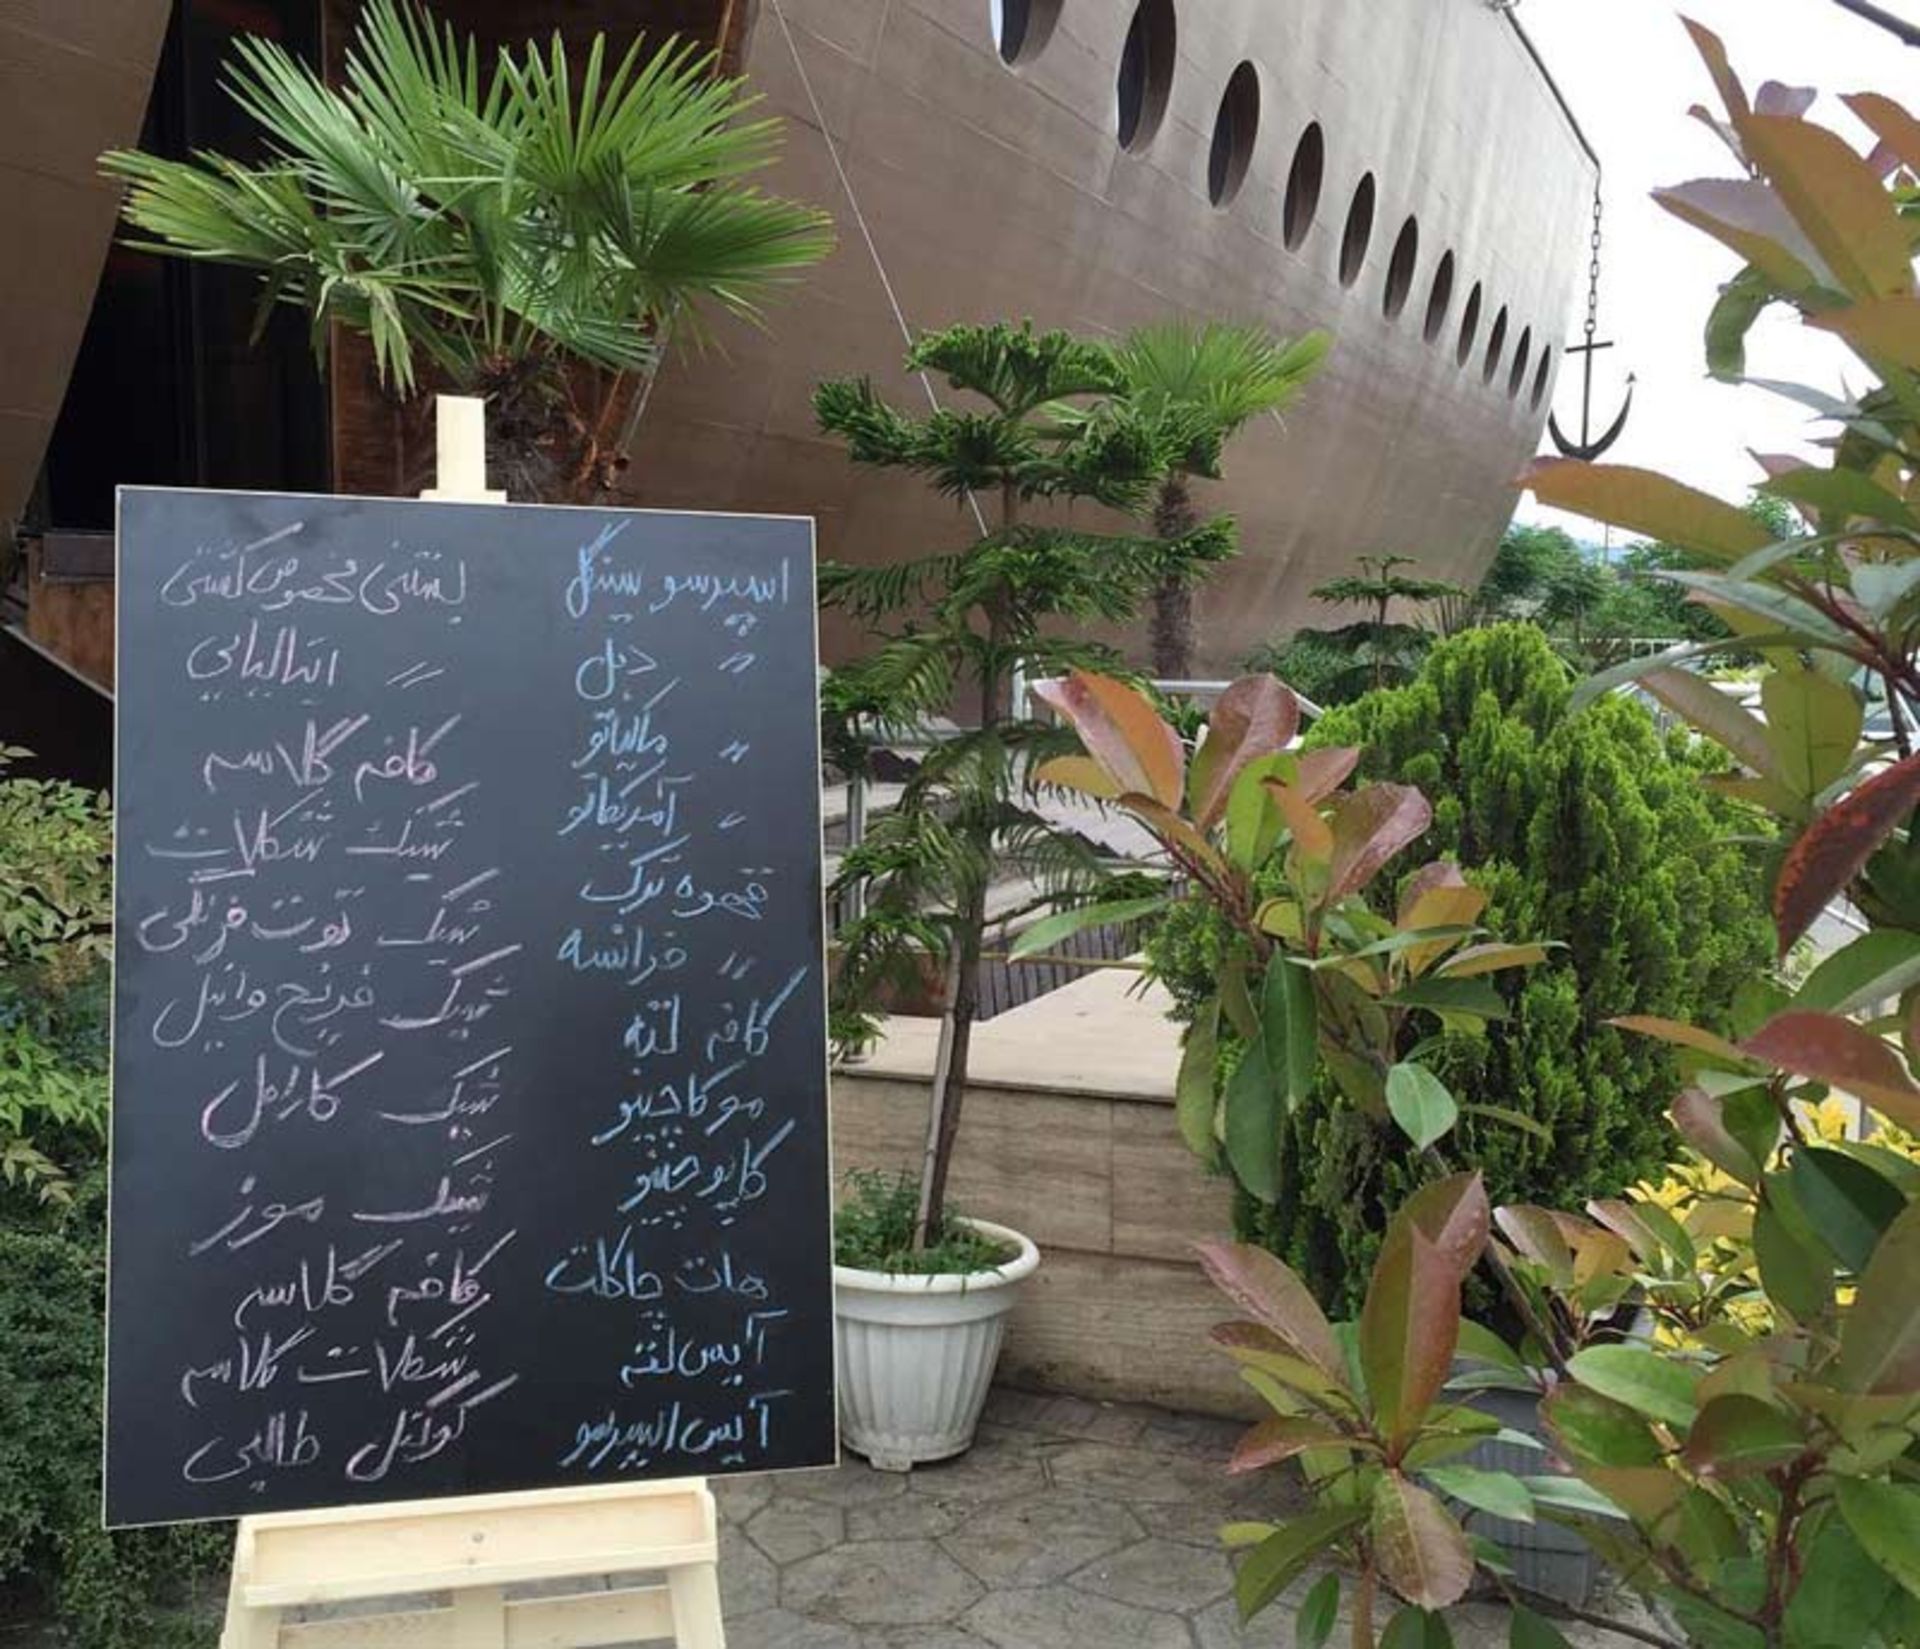 اسپرسو سینگل
〃 دبل
〃 ماکیاتو
〃 آمریکانو
قهوه ترک
〃 فرانسه
کافه لته
موکاچینو
کاپوچینو
هات چاکلت
آیس لته
آیس اسپرسو
بستنی مخصوص کشتی
〃 ایتالیایی
کافه گلاسه
شیک شکلات
شیک توت فرنگی
شیک فرنچ وانیل
شیک کارامل
شیک موز
کافه گلاسه
شکلات گلاسه
کوکتل طالبی